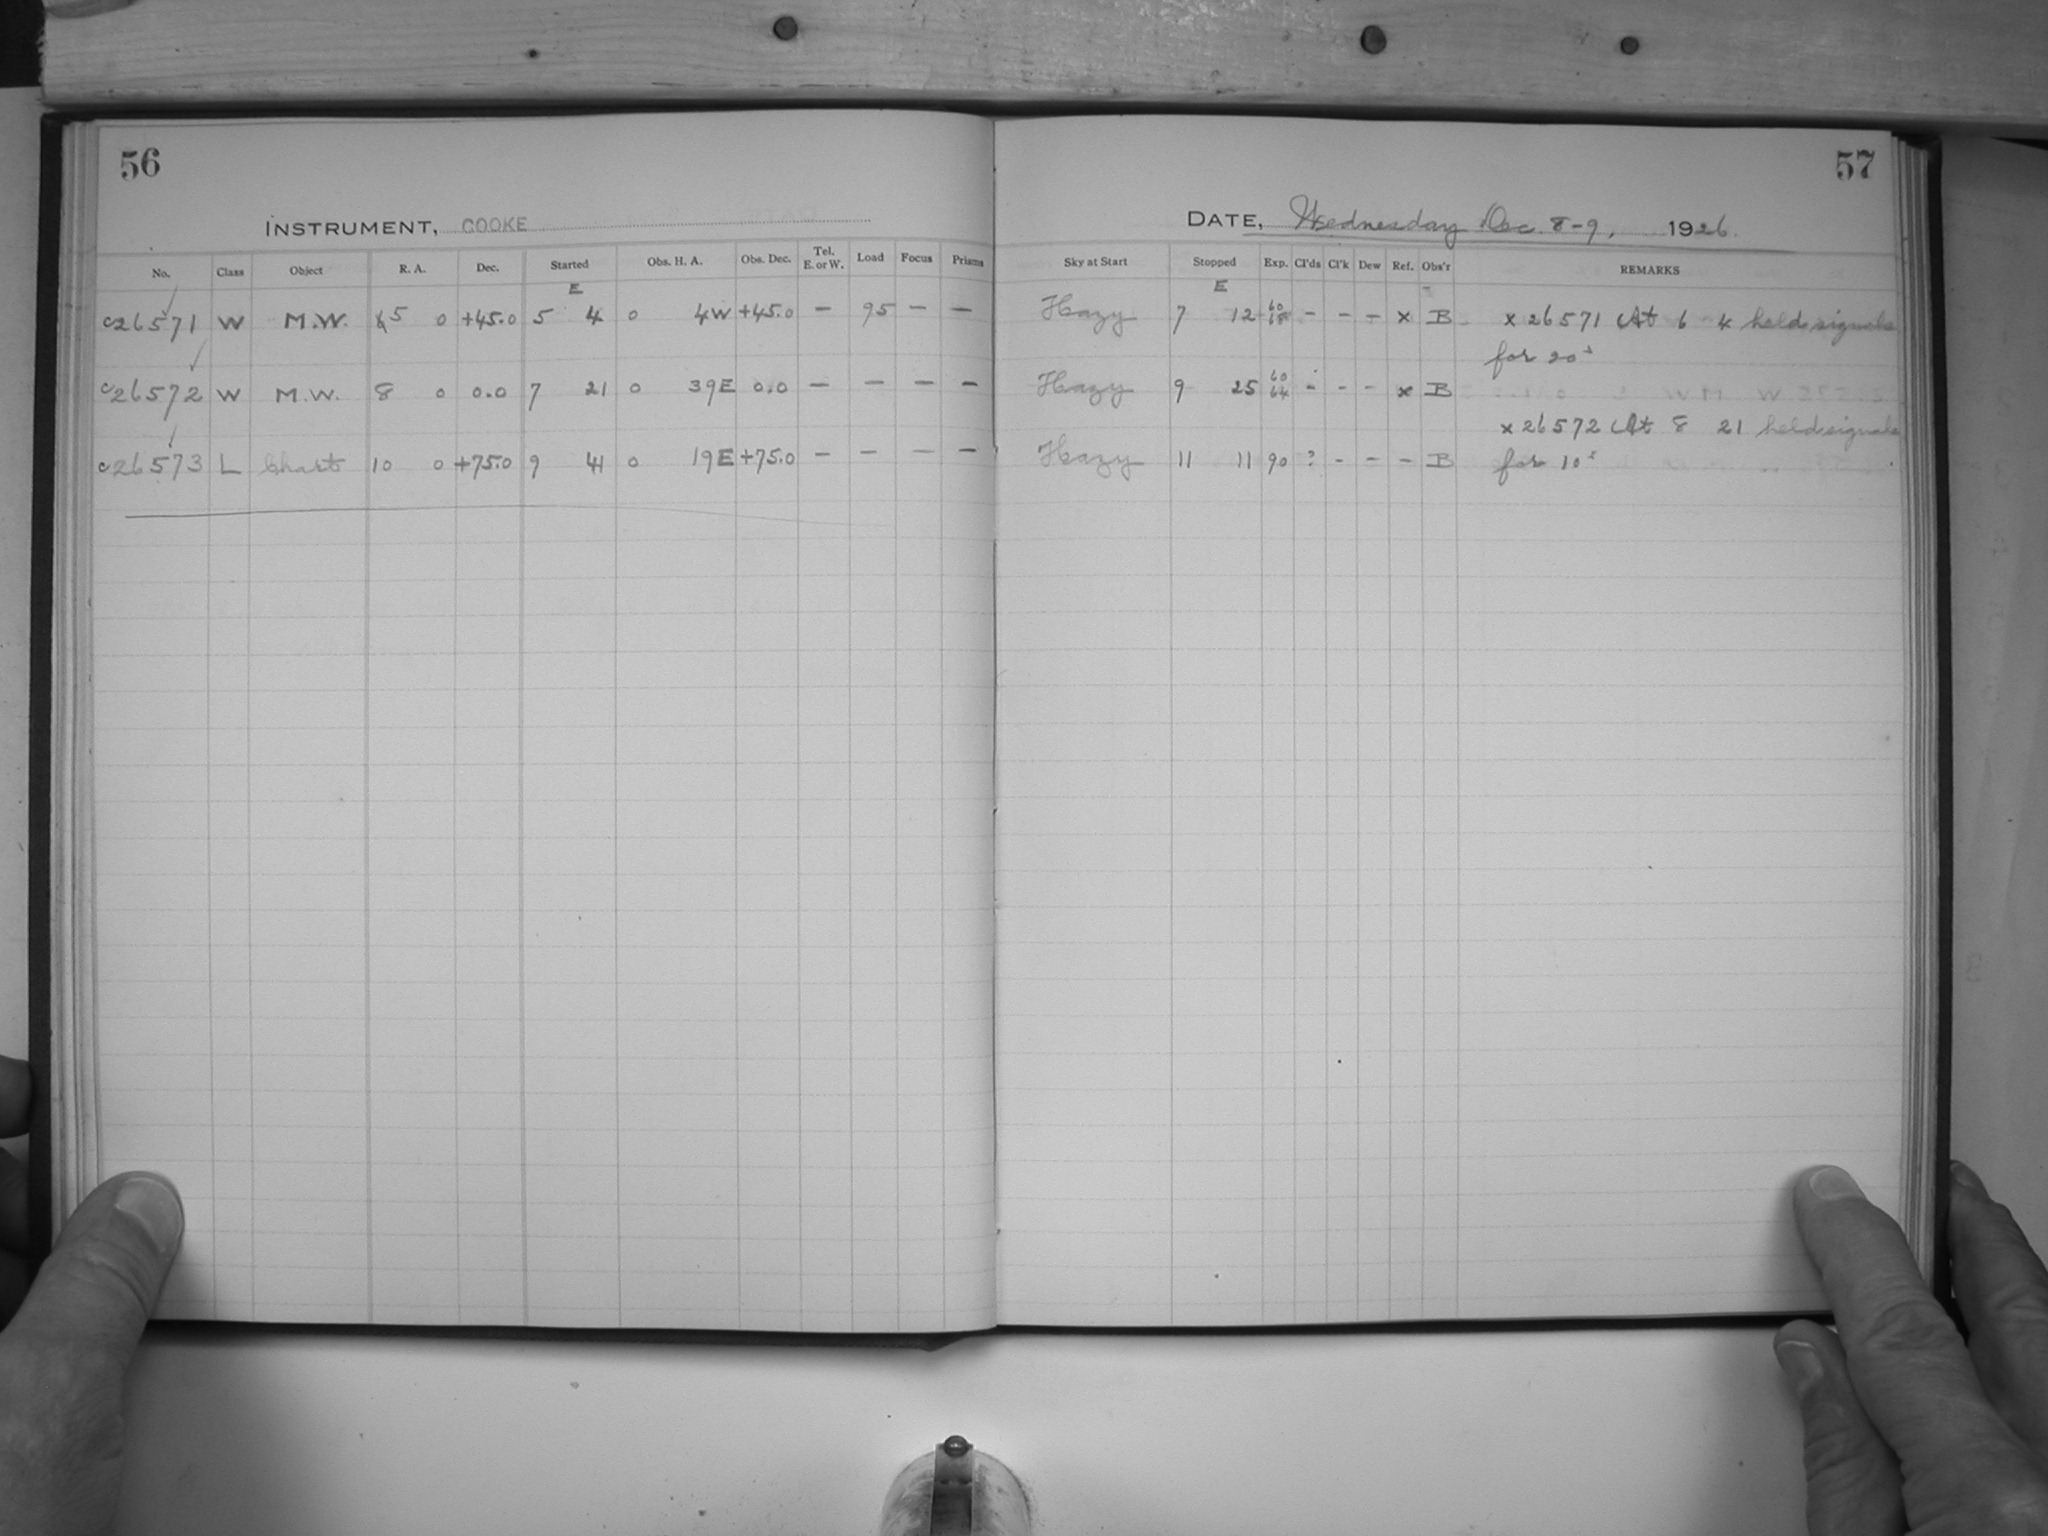 56
57
INSTRUMENT, COOKE
DATE, Wednesday Dec. 8-9, 1926.
No. Class Object R. A. Dec. Started Obs. H. A. Obs. Dec. Tel. E. or W. Load Focus Prisms Sky at Start Stopped Exp. Cl'ds Cl'k Dew Ref. Obs'r REMARKS
E E
c26571 W M.W. 5 0 +45.0 5 4 0 4W +45.0 — 95 — — Hazy 7 12 60 68 - - - x B x 26571 At 6 4 held signals
for 20s
c26572 W M.W. 8 0 0.0 7 21 0 39E 0.0 — — — — Hazy 9 25 60 64 - - - x B
x 26572 At 8 21 held signals
c26573 L Chart 10 0 +75.0 9 41 0 19E +75.0 — — — — Hazy 11 11 90 ? - - - B for 10s